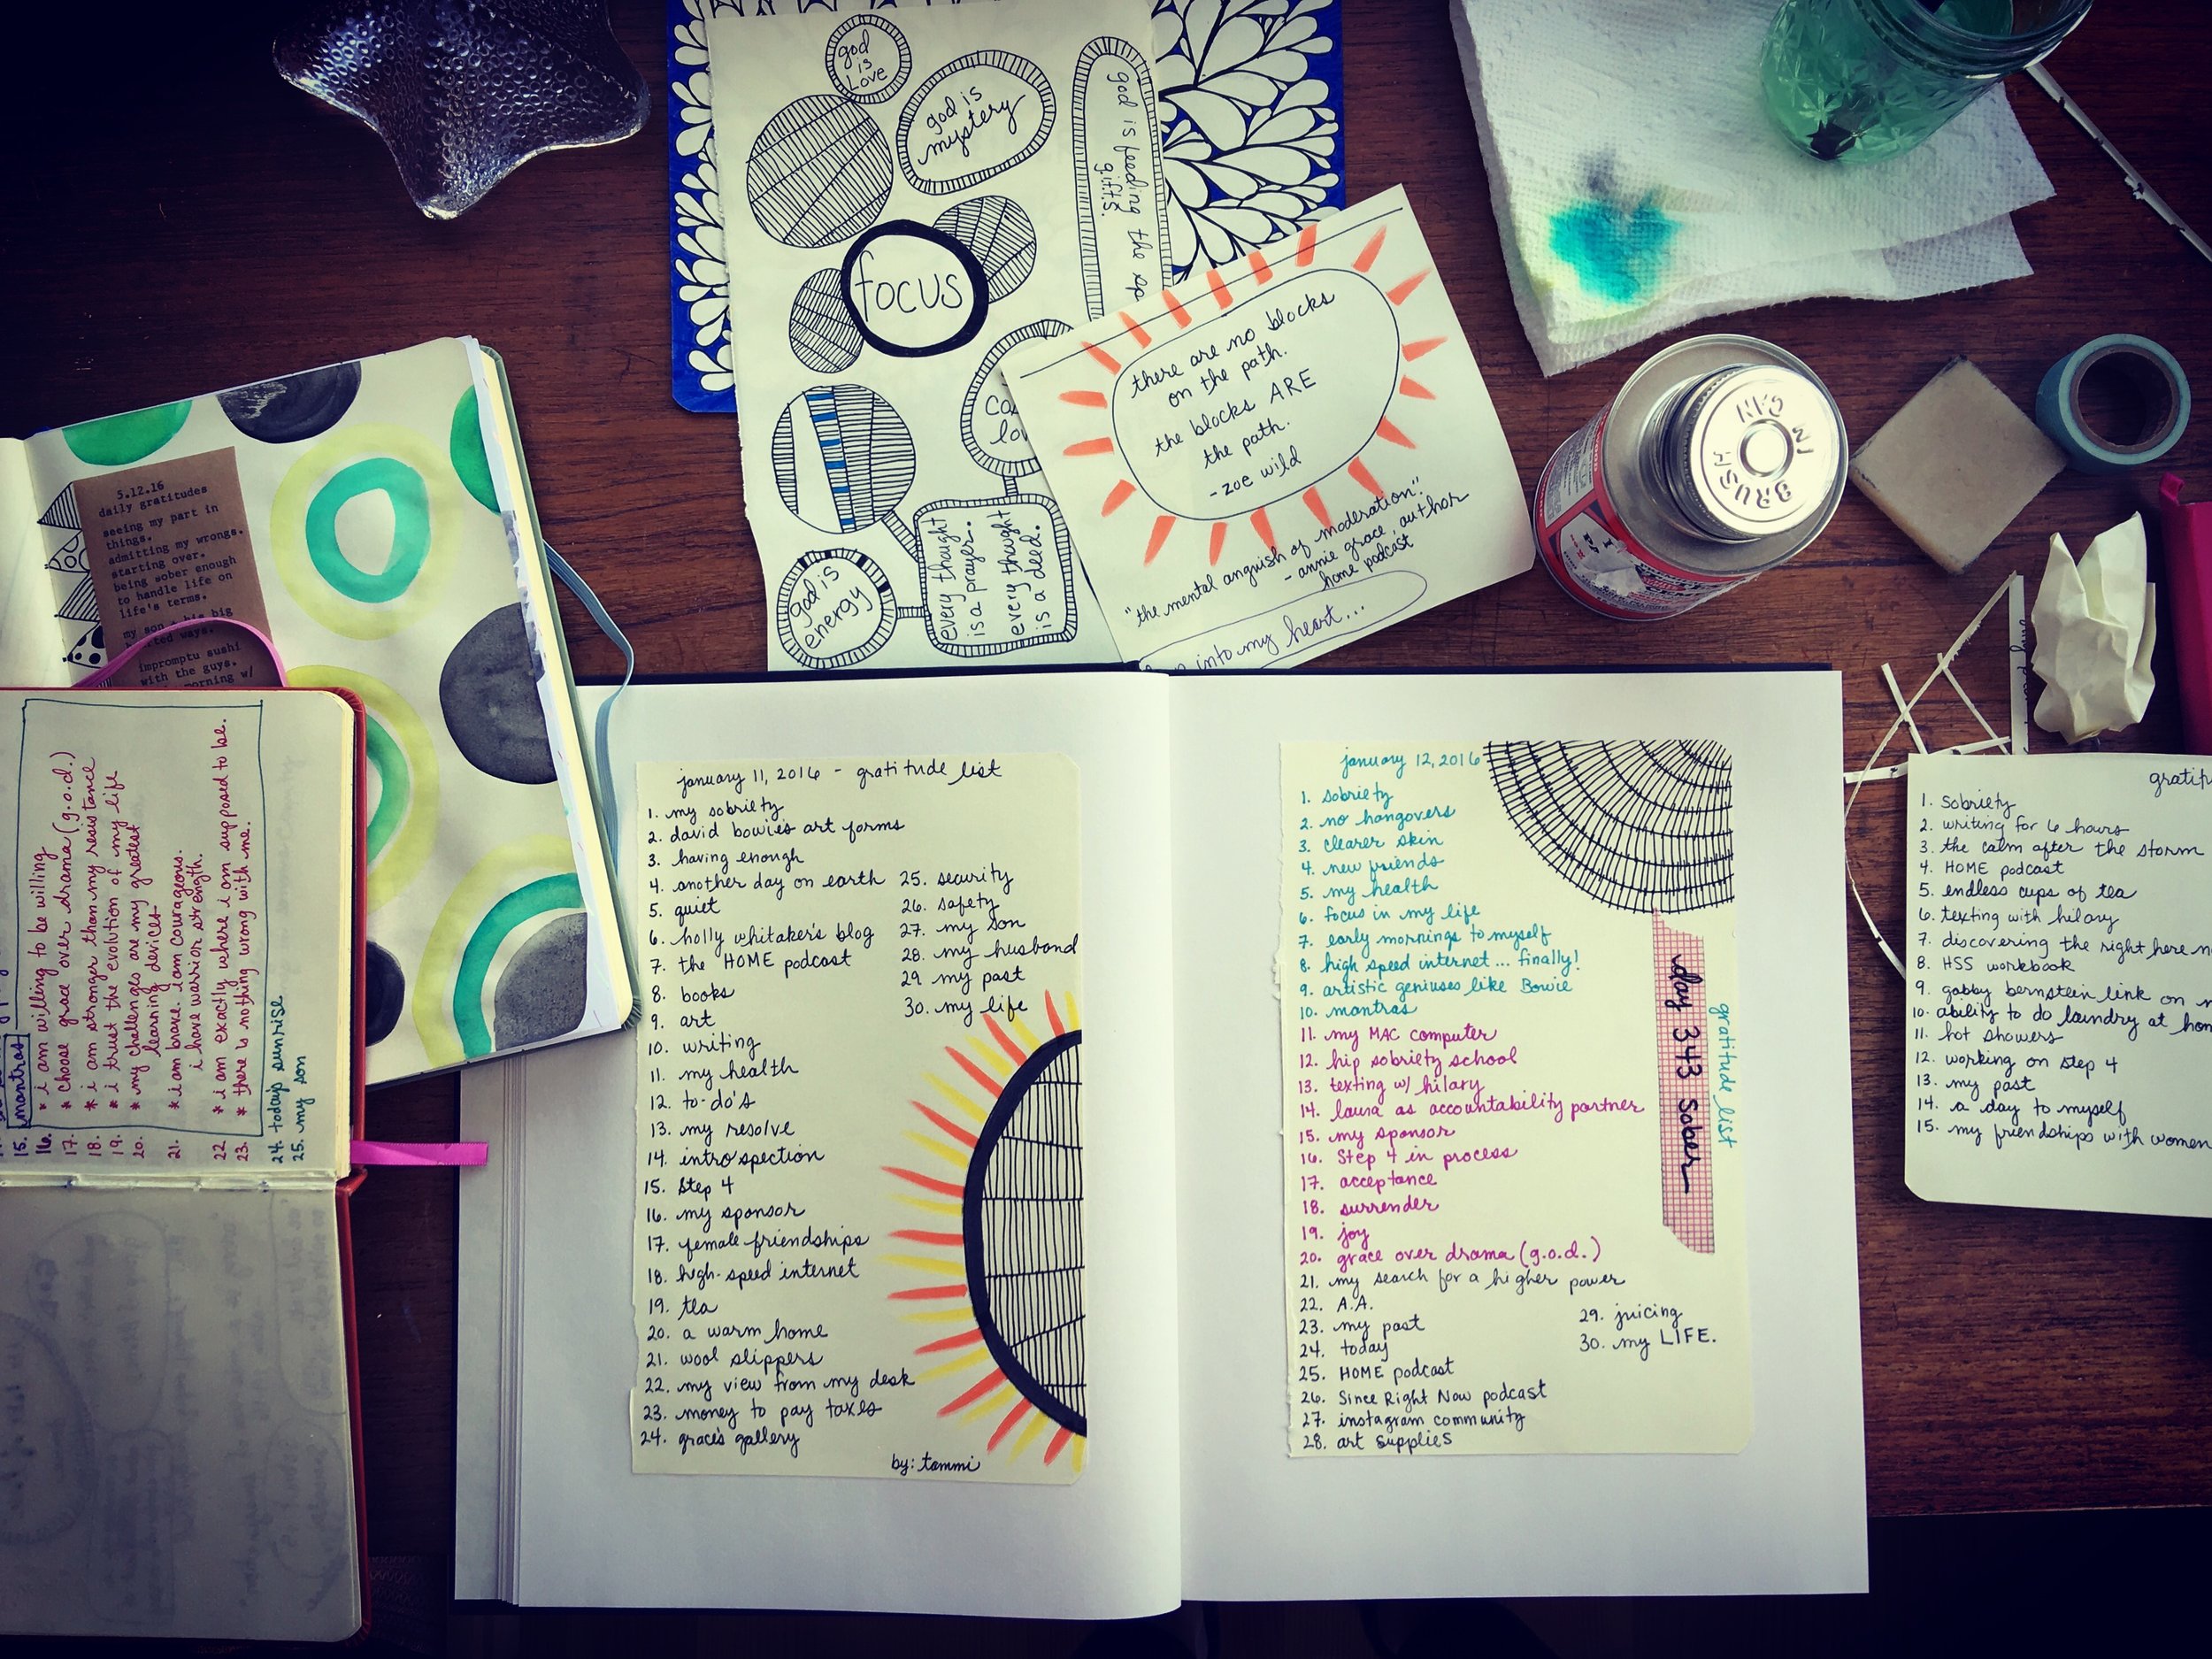 god
is
Love
god is
mystery
god is feeding the sp
gifts.
focus
cos
lov
every thought
is a prayer.
every thought
is a deed.
god is
energy
there are no blocks
on the path.
the blocks ARE
the path.
- zoe wild
"the mental anguish of moderation".
- annie grace, author
home podcast
into my heart...
BRUSH
IN CAN
5.12.16
daily gratitudes
seeing my part in
things.
admitting my wrongs.
starting over.
being sober enough
to handle life on
life's terms.
my son + his big
ted ways.
impromptu sushi
with the guys.
morning w/
15. mantras
16. * i am willing to be willing
17. * choose grace over drama (g.o.d.)
18. * i am stronger than my resistance
19. * i trust the evolution of my life
20. * my challenges are my greatest
learning devices
21. * i am brave. i am courageous.
i have warrior strength.
22 * i am exactly where i am supposed to be.
23. * there is nothing wrong with me.
24. today's sunrise
25. my son
january 11, 2016 - gratitude list
1. my sobriety
2. david bowie's art forms
3. having enough
4. another day on earth
5. quiet
6. holly whitaker's blog
7. the HOME podcast
8. books
9. art
10. writing
11. my health
12. to-do's
13. my resolve
14. introspection
15. Step 4
16. my sponsor
17. female friendships
18. high-speed internet
19. tea
20. a warm home
21. wool slippers
22. my view from my desk
23. money to pay taxes
24. grace's gallery
25. security
26. safety
27. my son
28. my husband
29 my past
30. my life
by: tammi
january 12, 2016
1. sobriety
2. no hangovers
3. clearer skin
4. new friends
5. my health
6. focus in my life
7. early mornings to myself
8. high speed internet... finally!
9. artistic geniuses like Bowie
10. mantras
11. my MAC computer
12. hip sobriety school
13. texting w/ hilary
14. laura as accountability partner
15. my sponsor
16. Step 4 in process
17. acceptance
18. surrender
19. joy
20. grace over drama (g.o.d.)
21. my search for a higher power
22. A.A.
23. my past
24. today
25. HOME podcast
26. Since Right Now podcast
27. instagram community
28. art supplies
29. juicing
30. my LIFE.
day 343 Sober
gratitude list
gratit
1. sobriety
2. writing for 6 hours
3. the calm after the storm
4. HOME podcast
5. endless cups of tea
6. texting with hilary
7. discovering the right here n
8. HSS workbook
9. gabby bernstein link on
10. ability to do laundry at hom
11. hot showers
12. working on step 4
13. my past
14. a day to myself
15. my friendships with women